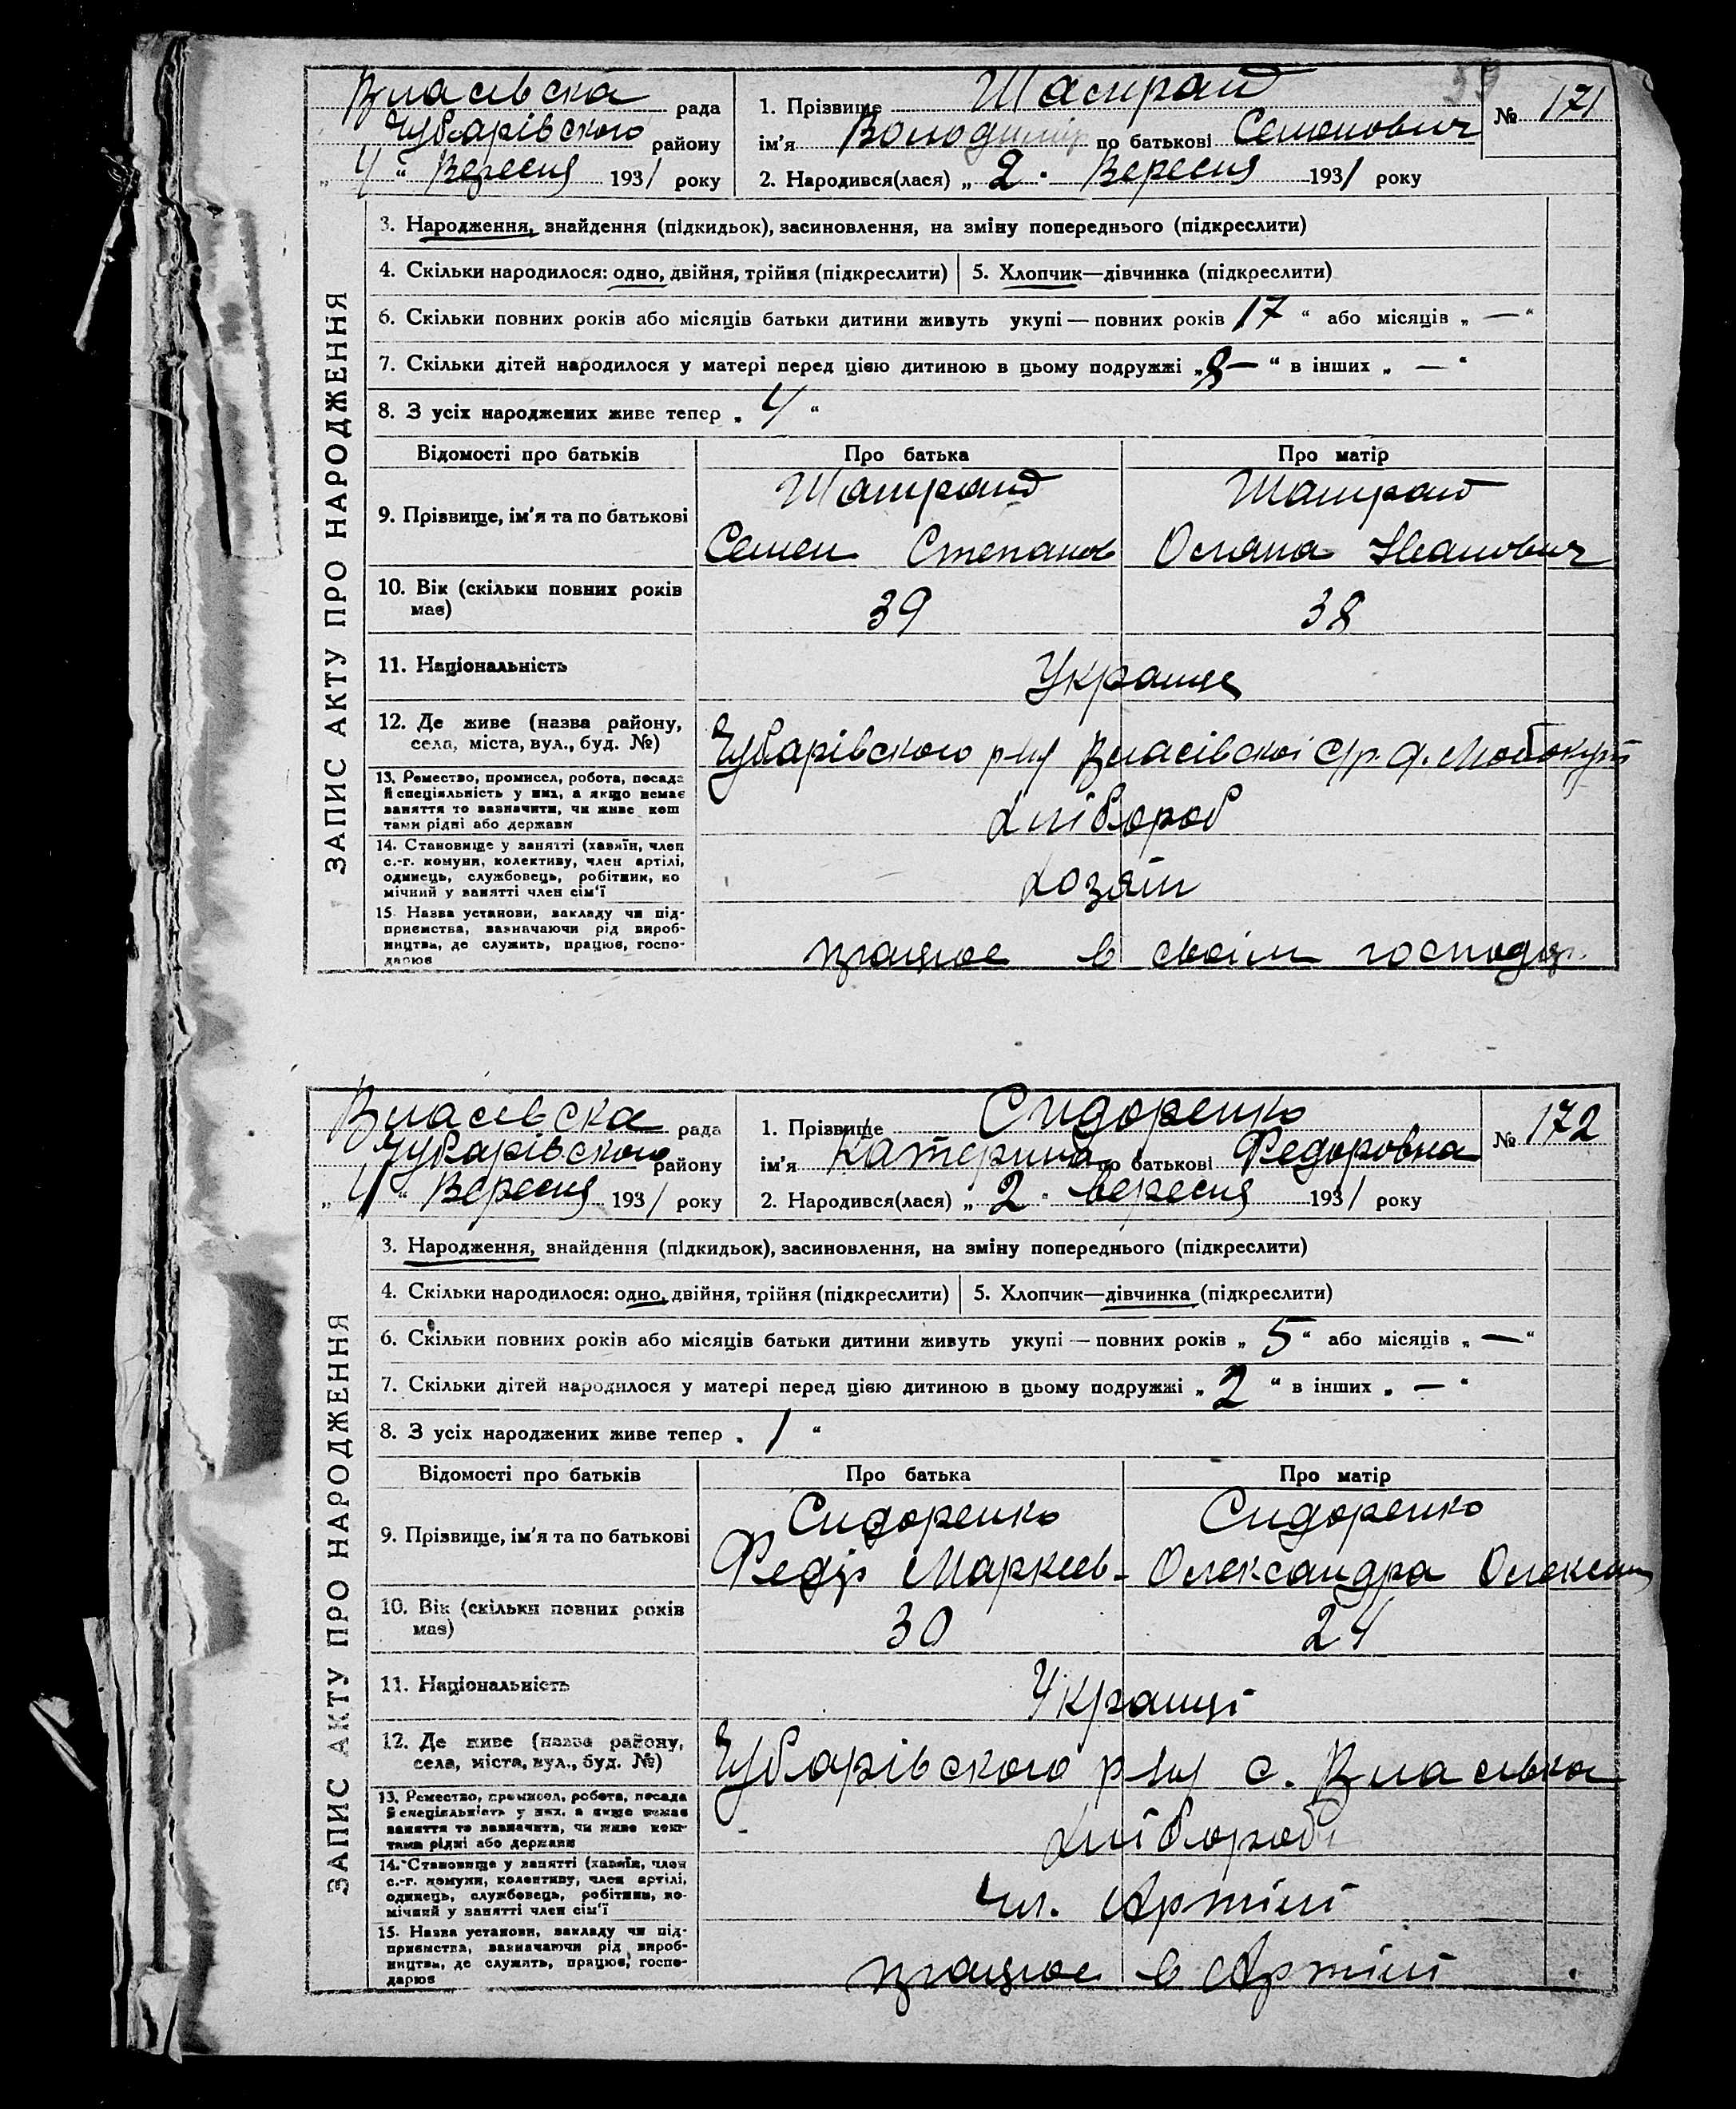 59
Власівска рада
Чубарівского району
„ 4 “ Вересня 1931 року
1. Прізвище Шапран
№ 171
ім'я Володимир по батькові Семенович
2. Народився(лася) „ 2 “ Вересня 1931 року
ЗАПИС АКТУ ПРО НАРОДЖЕННЯ
3. Народження, знайдення (підкидьок), засиновлення, на зміну попереднього (підкреслити)
4. Скільки народилося: одно, двійня, трійня (підкреслити) 5. Хлопчик—дівчинка (підкреслити)
6. Скільки повних років або місяців батьки дитини живуть укупі — повних років 17 “ або місяців „ — “
7. Скільки дітей народилося у матері перед цією дитиною в цьому подружжі „ 8 — “ в інших „ — “
8. З усіх народжених живе тепер „ 4 “
Відомості про батьків Про батька Про матір
9. Прізвище, ім'я та по батькові
Шапран Шапран
Семен Степанов Оляна Іванович
10. Вік (скільки повних років має) 39 38
11. Національність Українце
12. Де живе (назва району, села, міста, вул., буд. №)
Чубарівского р-ну Власівскої с/р.
13. Ремество, промисел, робота, посада
й спеціяльність у них, а якщо немає
заняття то зазначити, чи живе кош
тами рідні або держави
хлібороб
14. Становище у занятті (хазяїн, член
с.-г. комуни, колективу, член артілі,
одинець, службовець, робітник, по
мічний у занятті член сім'ї
хозяїн
15. Назва установи, закладу чи під-
приємства, зазначаючи рід вироб-
ництва, де служить, працює, госпо-
дарює
працює в своїм господар.
Власівска рада
Чубарівского району
„ 4 “ Вересня 1931 року
1. Прізвище Сидоренко
№ 172
ім'я Катерина по батькові Федоровна
2. Народився(лася) „ 2 “ вересня 1931 року
ЗАПИС АКТУ ПРО НАРОДЖЕННЯ
3. Народження, знайдення (підкидьок), засиновлення, на зміну попереднього (підкреслити)
4. Скільки народилося: одно, двійня, трійня (підкреслити) 5. Хлопчик—дівчинка (підкреслити)
6. Скільки повних років або місяців батьки дитини живуть укупі — повних років „ 5 “ або місяців „ — “
7. Скільки дітей народилося у матері перед цією дитиною в цьому подружжі „ 2 “ в інших „ — “
8. З усіх народжених живе тепер „ 1 “
Відомості про батьків Про батька Про матір
9. Прізвище, ім'я та по батькові
Сидоренко Сидоренко
Федір Маркієв- Олександра
10. Вік (скільки повних років має) 30 24
11. Національність Українці
12. Де живе (назва району, села, міста, вул., буд. №)
Чубарівского р-ну с. Власівка
13. Ремество, промисел, робота, посада
й спеціяльність у них, а якщо немає
заняття то зазначити, чи живе кош-
тами рідні або держави
хлібороби
14. Становище у занятті (хазяїн, член
с.-г. комуни, колективу, член артілі,
одинець, службовець, робітник, по-
мічний у занятті член сім'ї
чл. Артілі
15. Назва установи, закладу чи під-
приємства, зазначаючи рід вироб-
ництва, де служить, працює, госпо-
дарює
працює в Артілі